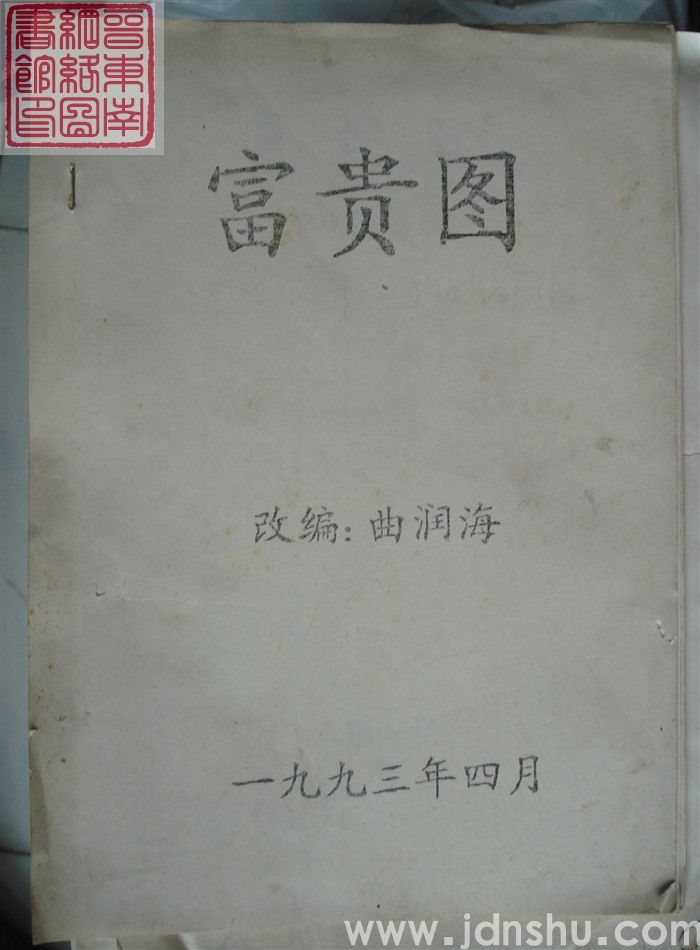 晋东南
網絡圖
書館印
富贵图
改编：曲润海
一九九三年四月
www.jdnshu.com